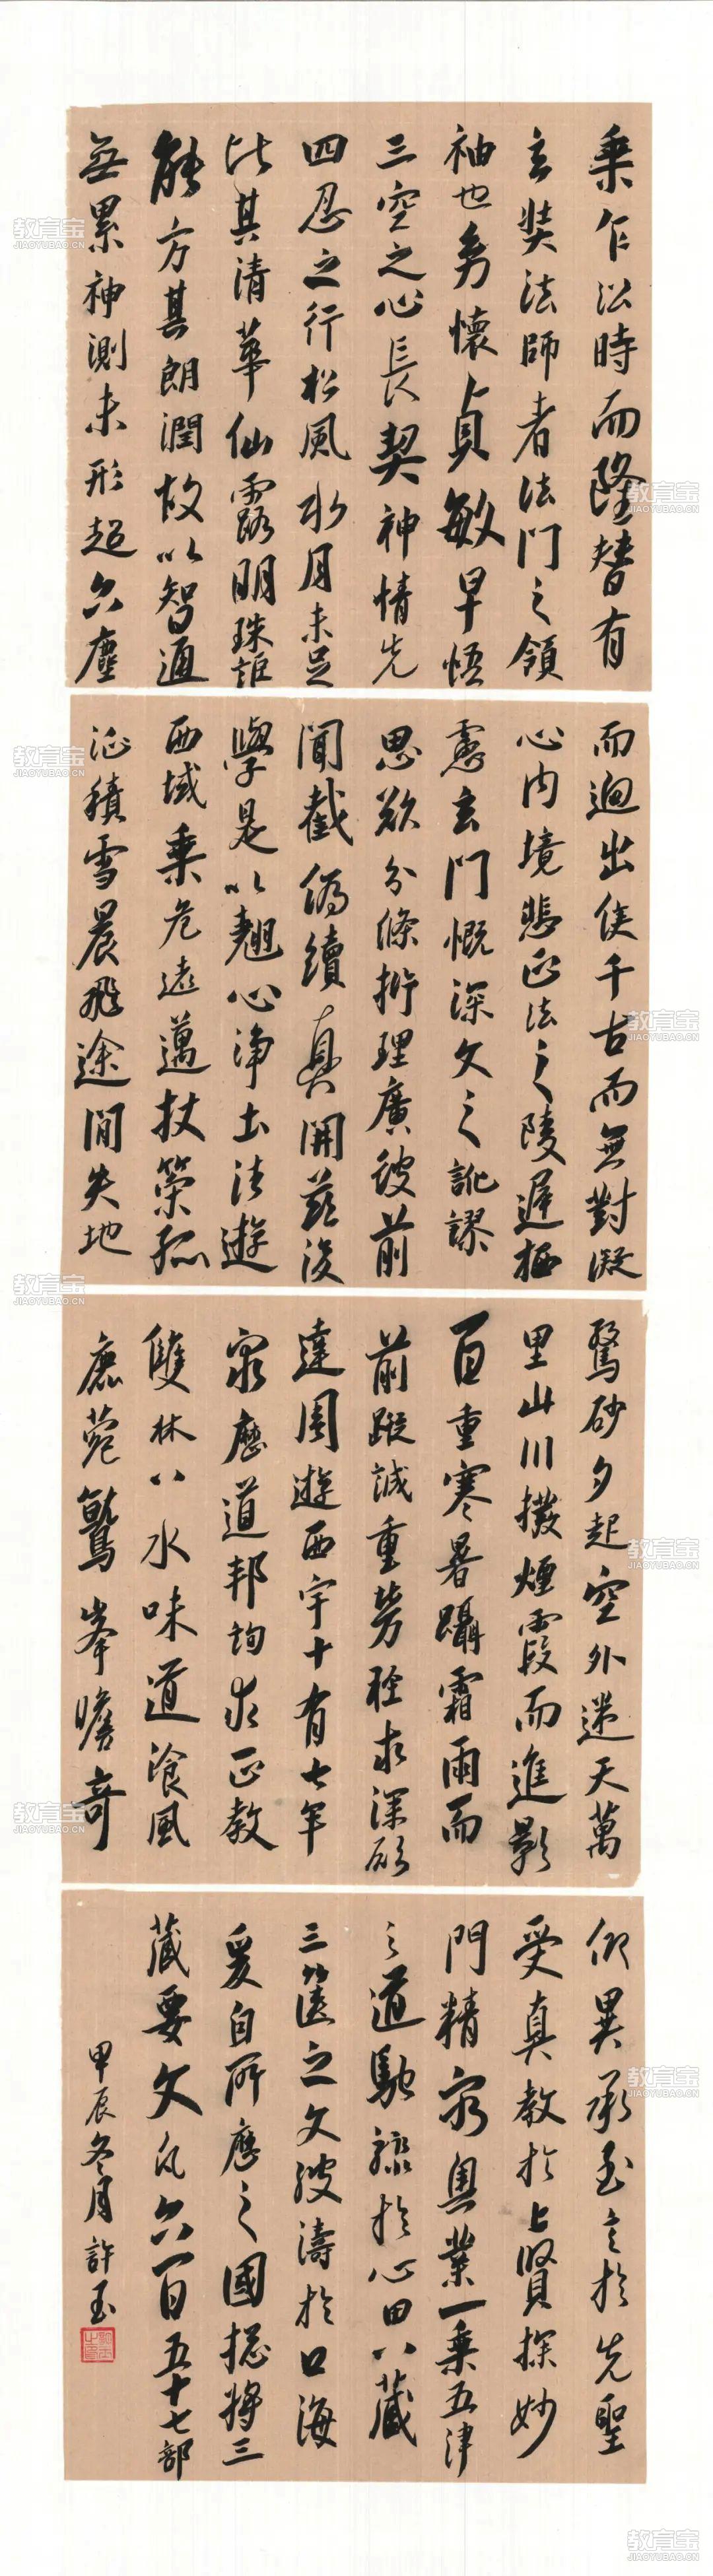 乘乍沿時而隆替有
玄奘法師者法門之領
袖也幼懷貞敏早悟
三空之心長契神情先
四忍之行松風水月未足
比其清華仙露明珠詎
能方其朗潤故以智通
無累神測未形超六塵
而迥出隻千古而無對凝
心內境悲正法之陵遲栖
慮玄門慨深文之訛謬
思欲分條析理廣彼前
聞截偽續真開茲後
學是以翹心淨土法遊
西域乘危遠邁杖策孤
征積雪晨飛途間失地
驚砂夕起空外迷天萬
里山川撥煙霞而進影
百重寒暑躡霜雨而
前蹤誠重勞輕求深願
達周遊西宇十有七年
窮歷道邦詢求正教
雙林八水味道飡風
鹿菀鷲峯瞻奇
仰異承至言於先聖
受真教於上賢探妙
門精窮奧業一乘五律
之道馳驟於心田八藏
三篋之文波濤於口海
爰自所歷之國揔將三
藏要文凡六百五十七部
甲辰冬月許玉
教育宝
JIAOYUBAO.CN
教育宝
JIAOYUBAO.CN
教育宝
JIAOYUBAO.CN
教育宝
JIAOYUBAO.CN
教育宝
JIAOYUBAO.CN
教育宝
JIAOYUBAO.CN
教育宝
JIAOYUBAO.CN
教育宝
JIAOYUBAO.CN
教育宝
JIAOYUBAO.CN